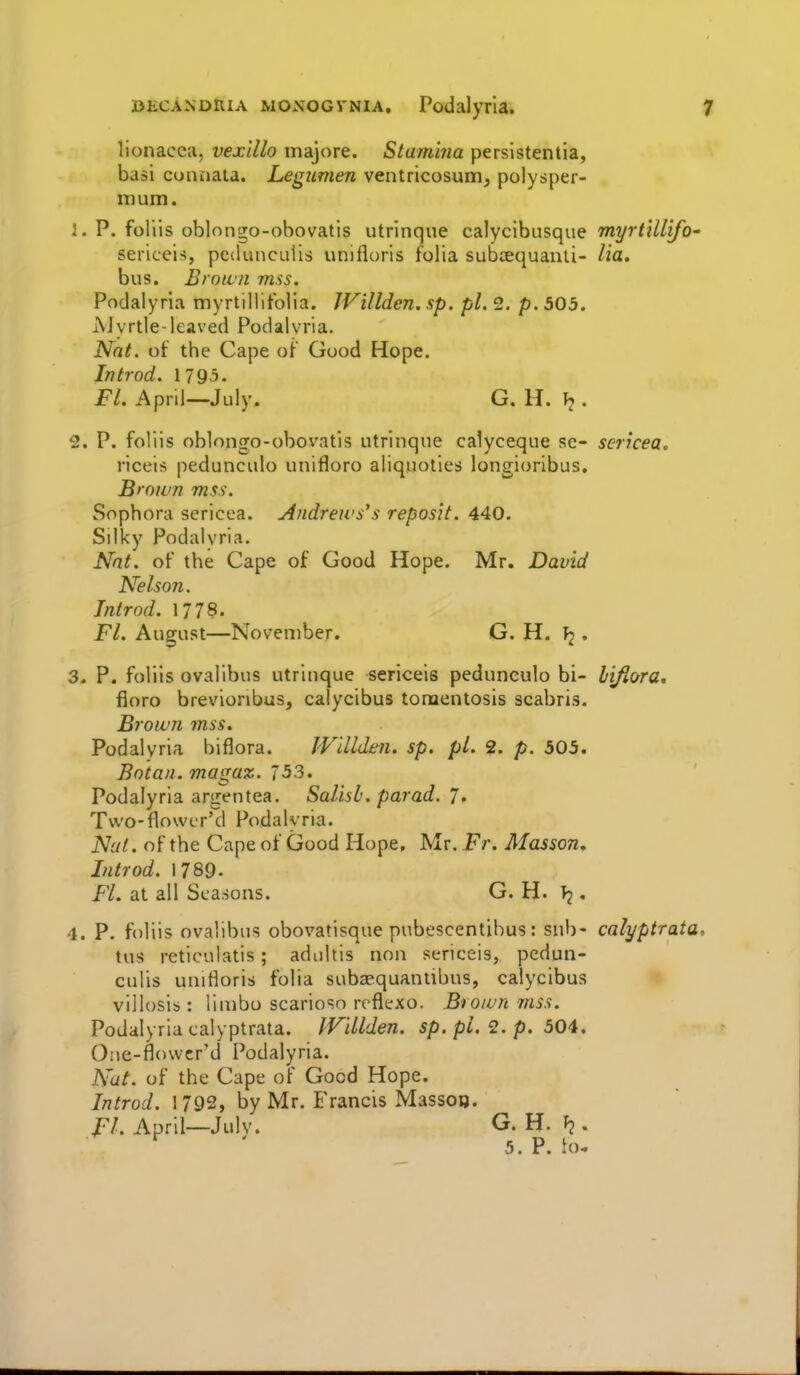 DECANDRIA MONOGYNIA. Podalyria. 7
lionacea, vexillo majore. Stamina persistentia,
basi connata. Legumen ventricosum, polysper-
mum.
1. P. foliis oblongo-obovatis utrinque calycibusque myrtillifo-
sericeis, pedunculis unifloris folia subæquanti- lia.
bus. Brown mss.
Podalyria myrtillifolia. Willden. sp. pl. 2. p. 505.
Myrtle-leaved Podalyria.
Nat. of the Cape of Good Hope.
Introd. 1795.
Fl. April—July. G. H. ♄.
2. P. foliis oblongo-obovatis utrinque calyceque se- sericea.
riceis pedunculo unifloro aliquoties longioribus.
Brown mss.
Sophora sericea. Andrews's reposit. 440.
Silky Podalyria.
Nat. of the Cape of Good Hope. Mr. David
Nelson.
Introd. 1778.
Fl. August—November. G. H. ♄.
3. P. foliis ovalibus utrinque sericeis pedunculo bi- biflora.
floro brevioribus, calycibus tomentosis scabris.
Brown mss.
Podalyria biflora. Willden. sp. pl. 2. p. 505.
Botan. magaz. 753.
Podalyria argentea. Salisb. parad. 7.
Two-flower'd Podalyria.
Nat. of the Cape of Good Hope. Mr. Fr. Masson.
Introd. 1789.
Fl. at all Seasons. G. H. ♄.
4. P. foliis ovalibus obovatisque pubescentibus: sub- calyptrata.
tus reticulatis; adultis non sericeis, pedun-
culis unifloris folia subæquantibus, calycibus
villosis: limbo scarioso reflexo. Brown mss.
Podalyria calyptrata. Willden. sp. pl. 2. p. 504.
One-flower'd Podalyria.
Nat. of the Cape of Good Hope.
Introd. 1792, by Mr. Francis Masson.
Fl. April—July. G. H. ♄.
5. P. fo-